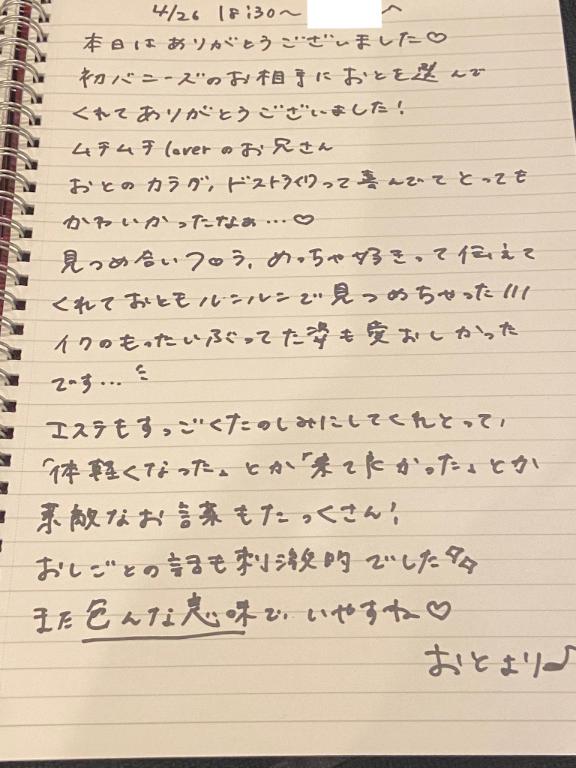 4/26 18:30〜 へ
本日はありがとうございました♡
初バニーズのお相手におとを選んで
くれてありがとうございました!
ムチムチloverのお兄さん
おとのカラダ、ドストライクって喜んでてとっても
かわいかったなぁ…♡
見つめ合いフロラ、めっちゃ好きって伝えて
くれておともルンルンで見つめちゃった!!!
イクのもったいぶってた姿も愛おしかった
です…
エステもすっごくたのしみにしてくれとって、
「体軽くなった」とか「来てよかった」とか
素敵なお言葉もたっくさん!
おしごとの話も刺激的でした
また色んな意味で、いやすね♡
おとより♪